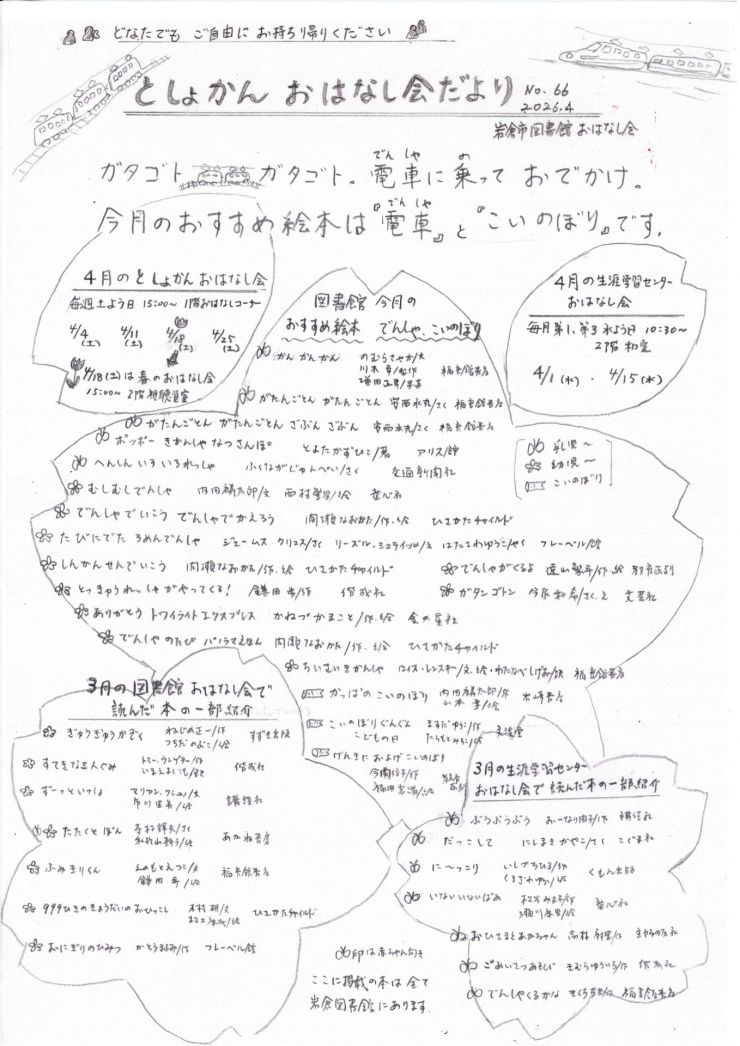 どなたでも ご自由に お持ち帰りください
としょかん おはなし会だより
No.66
2026.4
岩倉市図書館 おはなし会
ガタゴト ガタゴト。電車に乗って おでかけ。
今月のおすすめ絵本は『電車』と『こいのぼり』です。
4月のとしょかん おはなし会
毎週土よう日 15:00~ 1階おはなしコーナー
4/4(土) 4/11(土) 4/18(土) 4/25(土)
4/18(土)は春のおはなし会
15:00~ 2階視聴覚室
図書館 今月の
おすすめ絵本 でんしゃ、こいのぼり
4月の生涯学習センター
おはなし会
毎月第1、第3 水よう日 10:30~
2階 和室
4/1(水)・4/15(水)
かん かん かん のむらさやか/文
川本 幸/制作
塚田 正男/写真 福音館書店
がたんごとん がたんごとん 安西水丸/さく 福音館書店
がたんごとん がたんごとん ざぶん ざぶん 安西水丸/さく 福音館書店
ポッポー きかんしゃ なつさんぽ とよたかずひこ/著 アリス館
へんしん いろいろれっしゃ ふくながじゅんぺい/さく 交通新聞社
むしむしでんしゃ 内田麟太郎/文 西村繁男/絵 童心社
でんしゃでいこう でんしゃでかえろう 間瀬なおかた/作、絵 ひさかたチャイルド
たびにでた ろめんでんしゃ ジェームス クリュス/さく リーズル・シュティッヒ/え はたさわゆうこ/やく フレーベル館
しんかんせんでいこう 間瀬なおかた/作、絵 ひさかたチャイルド
でんしゃがくるよ 遠山繁年/作、絵 教育画劇
とっきゅうれっしゃがやってくる! 鎌田 歩/作 偕成社
ガタンゴトン 今 和希/さく、え 文芸社
ありがとう トワイライトエクスプレス かねづかまこと/作、絵 金の星社
でんしゃのたび パノラマえほん 間瀬なおかた/作、絵 ひさかたチャイルド
ちいさいきかんしゃ ロイス・レンスキー/文、絵・わたなべしげお/訳 福音館書店
かっぱのこいのぼり 内田麟太郎/作
山本 孝/絵 岩崎書店
こいのぼりぐんぐん
こどもの日 ますだゆうこ/作
たちもとみちこ/絵 文溪堂
げんきにおよげこいのぼり
今関信子/作
福田岩緒/絵 教育画劇
乳児~
幼児~
こいのぼり
3月の図書館 おはなし会で
読んだ本の一部紹介
ぎゅうぎゅうかぞく ねじめ正一/作
つちだのぶこ/絵 すずき出版
すてきな三にんぐみ トミー、ウンゲラー/作
いまえよしとも/訳 偕成社
ずーっといっしょ マリアン、クシュマノ/文
市川里美/絵 講談社
たたくとぽん 寺村輝夫/さく
和歌山静子/絵 あかね書房
ふみきりくん えのもとえつこ/文
鎌田 歩/絵 福音館書店
999ひきのきょうだいのおひっこし 木村 研/文
村上康成/絵 ひさかたチャイルド
おにぎりのひみつ かとうまふみ/作 フレーベル館
3月の生涯学習センター
おはなし会で 読んだ本の一部紹介
ぷうぷうぷう おーなり由子/作 講談社
だっこして にしまきかやこ/さく こぐま社
に~っこり いしづちひろ/作
くろさわゆうこ/絵 くもん出版
いないいないばあ 松谷みよ子/作
瀬川康男/絵 童心社
おひさまとあかちゃん 高林 麻里/作
ごあいさつあそび きむらゆういち/作 偕成社
でんしゃくるかな きくちちき/作 福音館書店
印は赤ちゃん向き
ここに掲載の本は全て
岩倉図書館にあります。